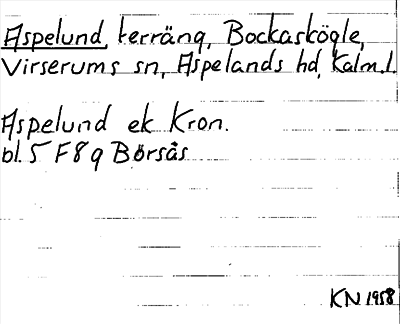 Aspelund, terräng, Bockaskögle,
Virserums sn, Aspelands hd, Kalm.l.
Aspelund ek Kron.
bl. 5 F 8 g Börsås
KN 1958